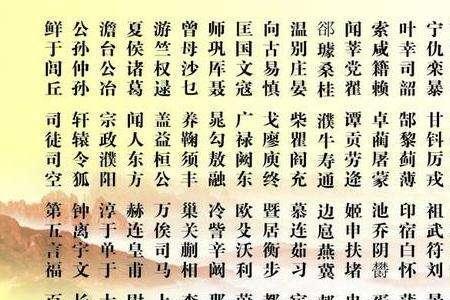 宁仇栾暴甘钭厉戎祖武符刘
叶幸司韶郜黎蓟薄印宿白怀
索咸籍赖卓蔺屠蒙池乔阴鬱
闻莘党翟谭贡劳逄姬申扶堵
郤璩桑桂濮牛寿通边扈燕冀
温别庄晏柴瞿阎充慕连茹习
向古易慎戈廖庾终暨居衡步
匡国文寇广禄阙东欧殳沃利
师巩厍聂晁勾敖融冷訾辛阚
曾母沙乜养鞠须丰巢关蒯相
游竺权逯盖益桓公万俟司马
夏侯诸葛闻人东方赫连皇甫
澹台公冶宗政濮阳淳于单于
公孙仲孙轩辕令狐钟离宇文
鲜于闾丘司徒司空第五言福